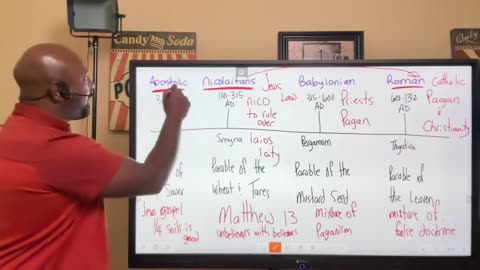 CANDY AND SODA
Candy AND Soda
Apostolic
Nicolaitans
Jews
Babylonian
Roman
Catholic
3
100-315
AD
nico
to rule
over
Laws
315-600
AD
Priests
Pagan
600-1350
AD
Pagan
&
Christianity
Smyrna
laios
laity
Pergamom
Thyatira
of
Sower
Parable of the
Wheat & Tares
Parable of the
Mustard Seed
Parable of
the Leaven
Jews gospel
1/4 soils is
good
Matthew 13
unbelievers with believers
mixture of
Paganism
mixture of
false doctrine